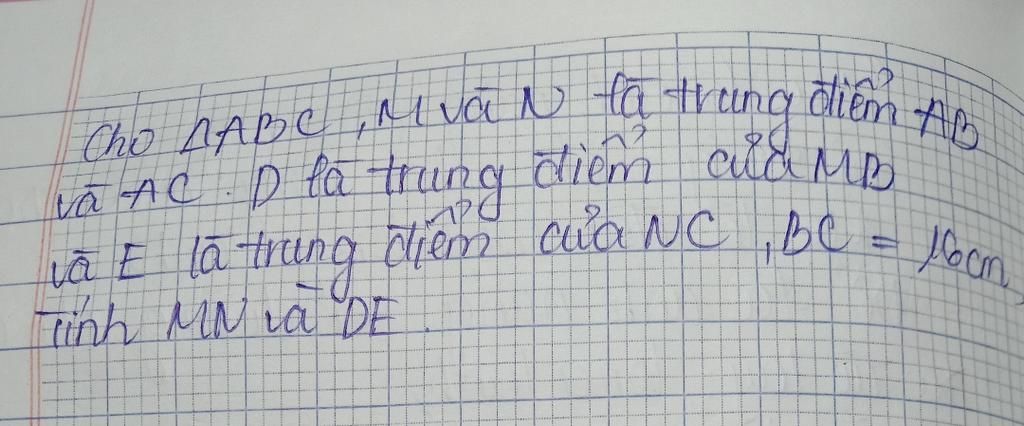 Cho ΔABC, M và N là trung điểm AB
và AC. D là trung điểm của MB
và E là trung điểm của NC, BC = 16cm,
Tính MN và DE.